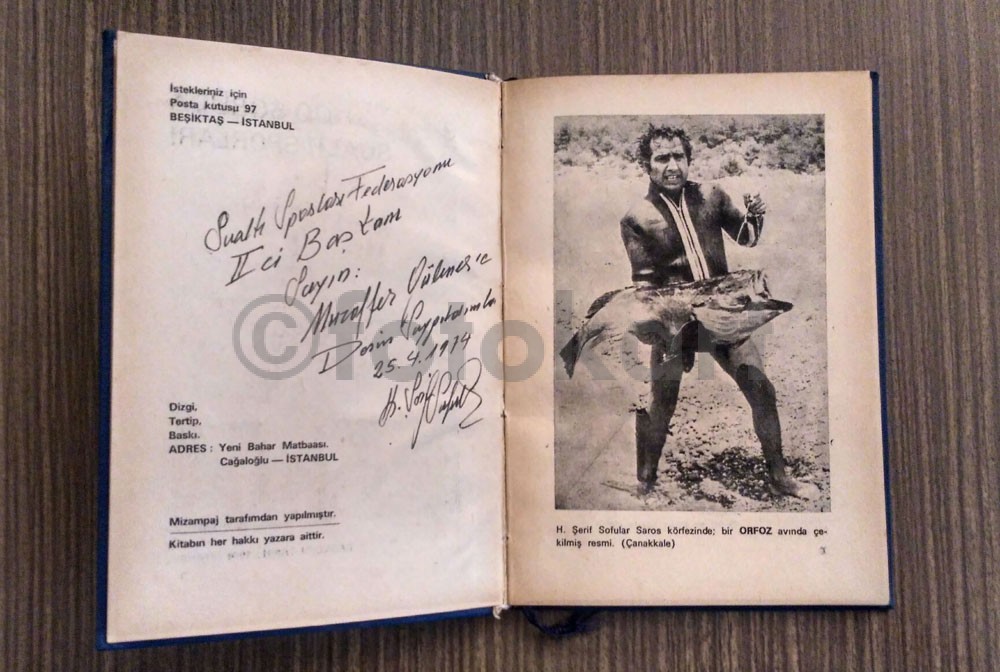 İstekleriniz için
Posta kutusu 97
BEŞİKTAŞ — İSTANBUL
Sualtı Sporları Federasyonu
II ci Başkanı
Sayın:
Muzaffer
Saygılarımla
25.4.1974
H. Şerif
©fotokart
Dizgi,
Tertip,
Baskı.
ADRES : Yeni Bahar Matbaası.
Cağaloğlu — İSTANBUL
Mizampaj tarafımdan yapılmıştır.
Kitabın her hakkı yazara aittir.
H. Şerif Sofular Saros körfezinde; bir ORFOZ avında çe-
kilmiş resmi. (Çanakkale)
3